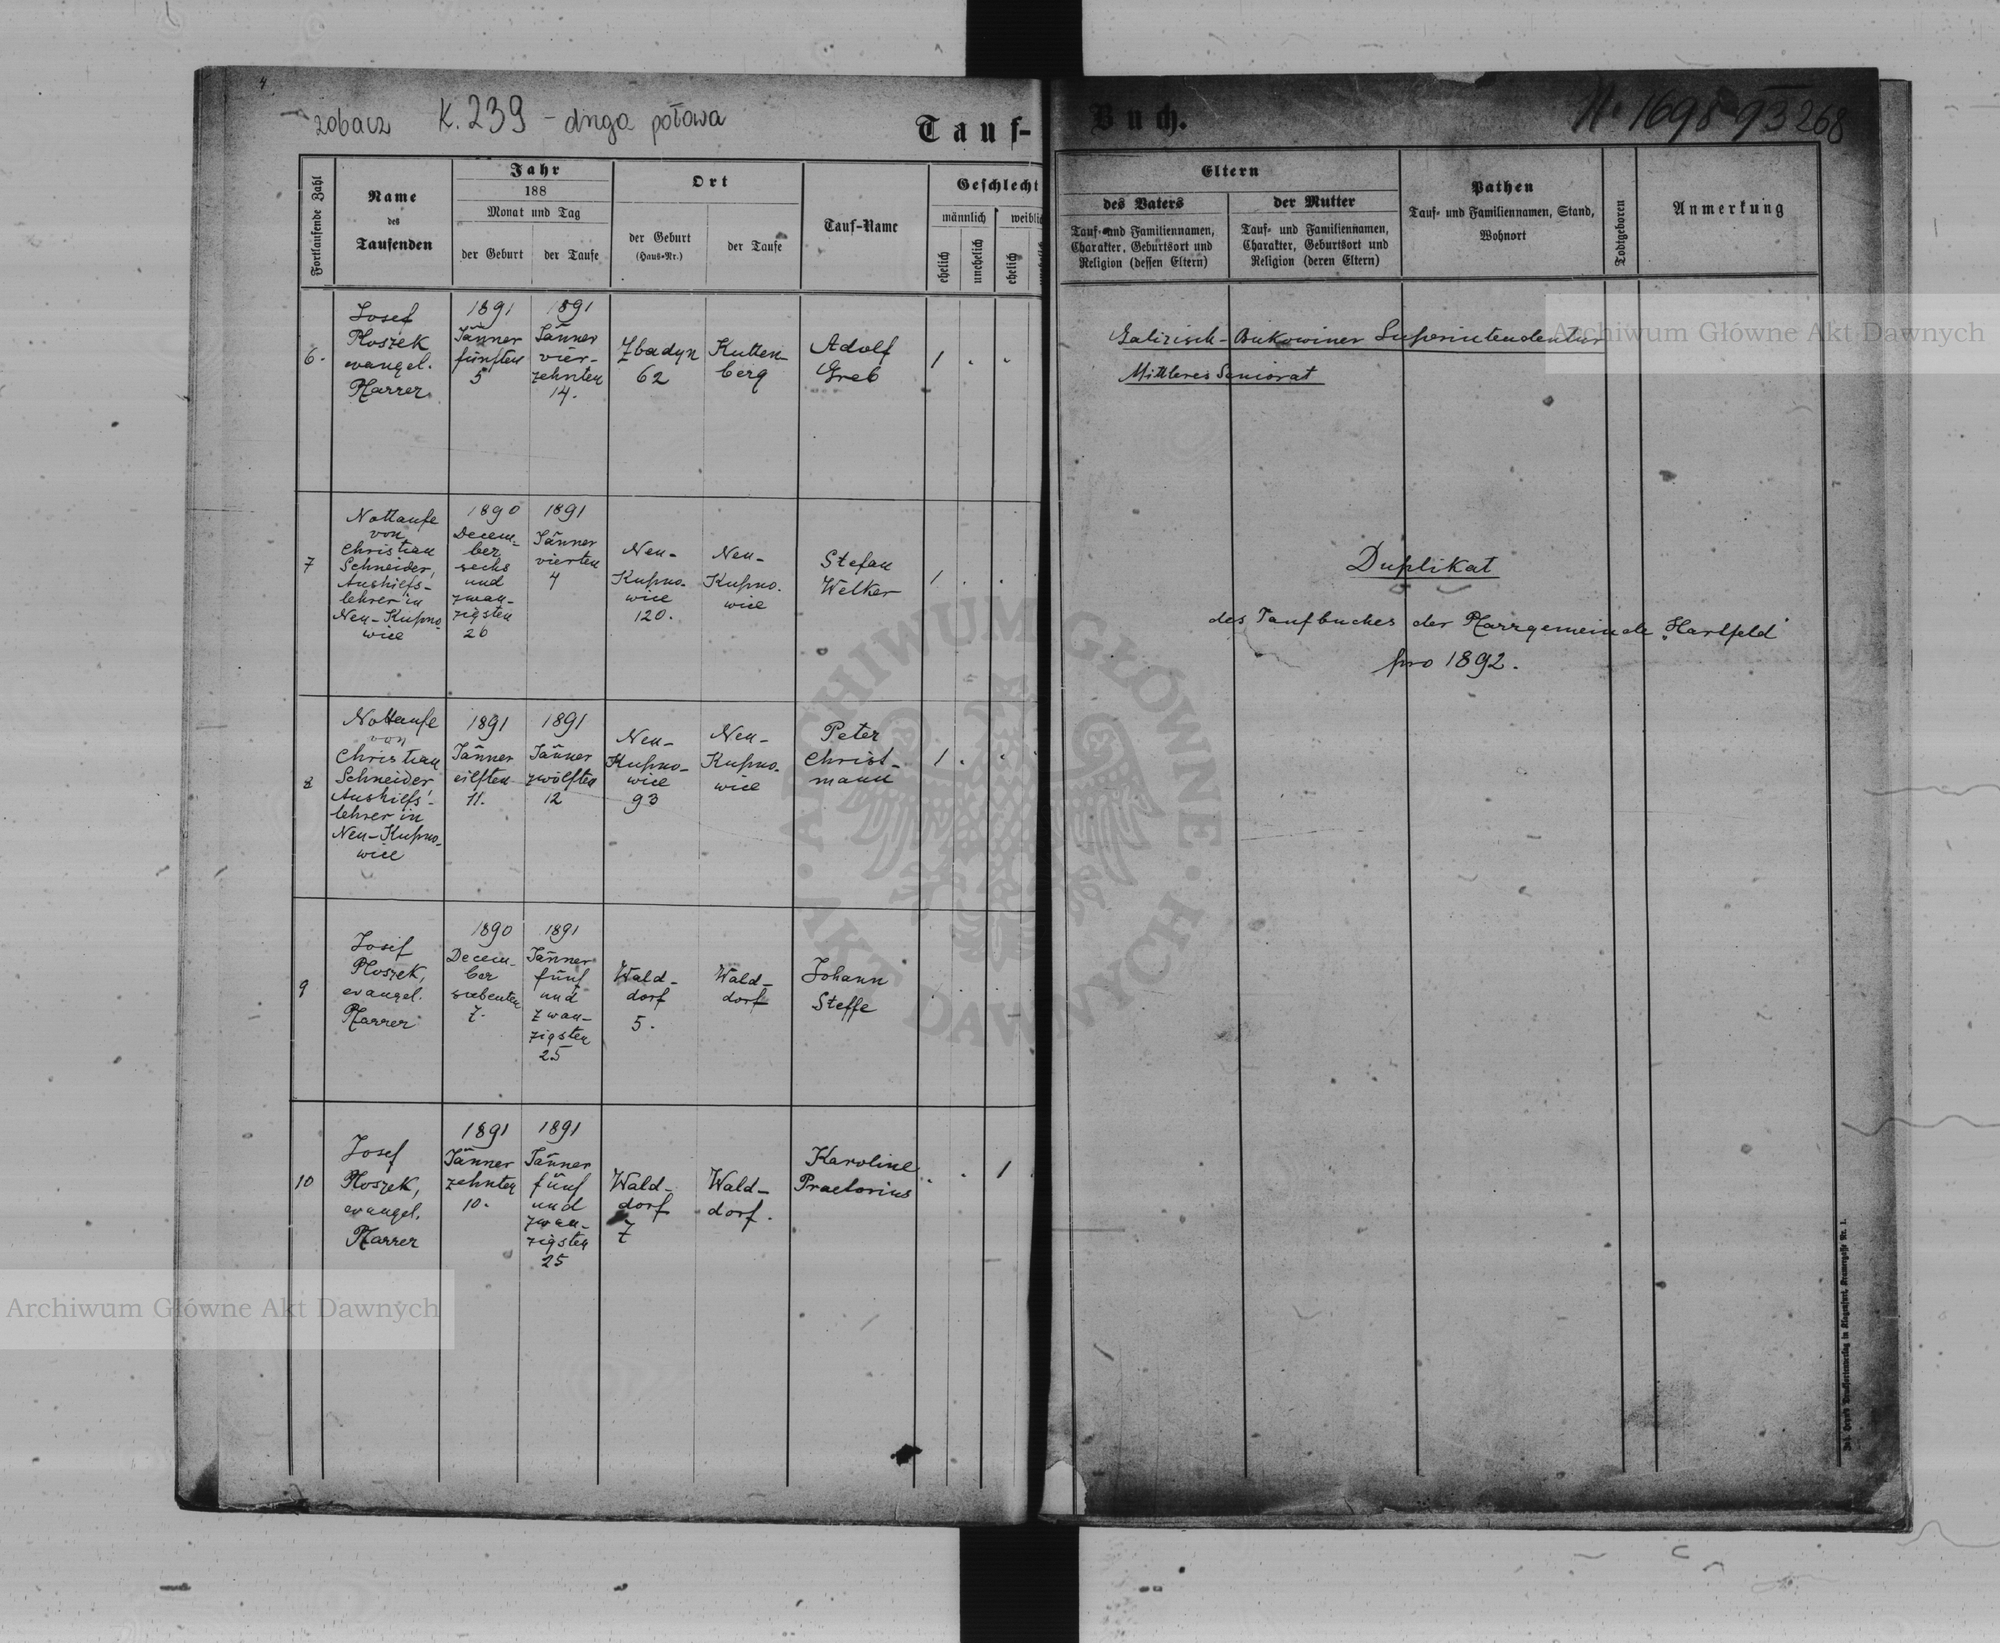 4
zobacz K. 239 - druga połowa
Tauf-
Fortlaufende Zahl
Name
des
Taufenden
Jahr
188
Monat und Tag
der Geburt
der Taufe
Ort
der Geburt
(Haus-Nr.)
der Taufe
Tauf-Name
Geschlecht
männlich
weiblich
ehelich
unehelich
ehelich
6.
Josef
Ploszek
evangel.
Pfarrer
1891
Jänner
fünften
5
1891
Jänner
vier-
zehnten
14.
Zbadyn
62
Kutten-
berg
Adolf
Greb
1 . .
7
Nottaufe
von
Christian
Schneider,
Aushilfs-
lehrer in
Neu-Kupno-
wice
1890
Decem-
ber
sechs
und
zwan-
zigsten
26
1891
Jänner
vierten
4
Neu-
Kupno-
wice
120.
Neu-
Kupno-
wice
Stefan
Welker
1 . .
8
Nottaufe
von
Christian
Schneider
Aushilfs-
lehrer in
Neu-Kupno-
wice
1891
Jänner
eilften
11.
1891
Jänner
zwölften
12
Neu-
Kupno-
wice
93
Neu-
Kupno-
wice
Peter
Christ-
mann
1 . .
9
Josef
Ploszek,
evangel.
Pfarrer
1890
Decem-
ber
siebenten
7.
1891
Jänner
fünf
und
zwan-
zigsten
25
Wald-
dorf
5.
Wald-
dorf
Johann
Steffe
10
Josef
Ploszek,
evangel.
Pfarrer
1891
Jänner
zehnten
10.
1891
Jänner
fünf
und
zwan-
zigsten
25
Wald-
dorf
7
Wald-
dorf.
Karoline
Praetorius
. . 1
Buch.
No 1698-93 268
Eltern
des Vaters
Tauf- und Familiennamen,
Charakter, Geburtsort und
Religion (dessen Eltern)
der Mutter
Tauf- und Familiennamen,
Charakter, Geburtsort und
Religion (deren Eltern)
Pathen
Tauf- und Familiennamen, Stand,
Wohnort
Todtgeboren
Anmerkung
Galizisch-Bukowiner Superintendentur
Mittleres Seniorat
Duplikat
des Taufbuches der Pfarrgemeinde „Hartfeld"
pro 1892.
Archiwum Główne Akt Dawnych
Archiwum Główne Akt Dawnych
ARCHIWUM GŁÓWNE · AKT DAWNYCH ·